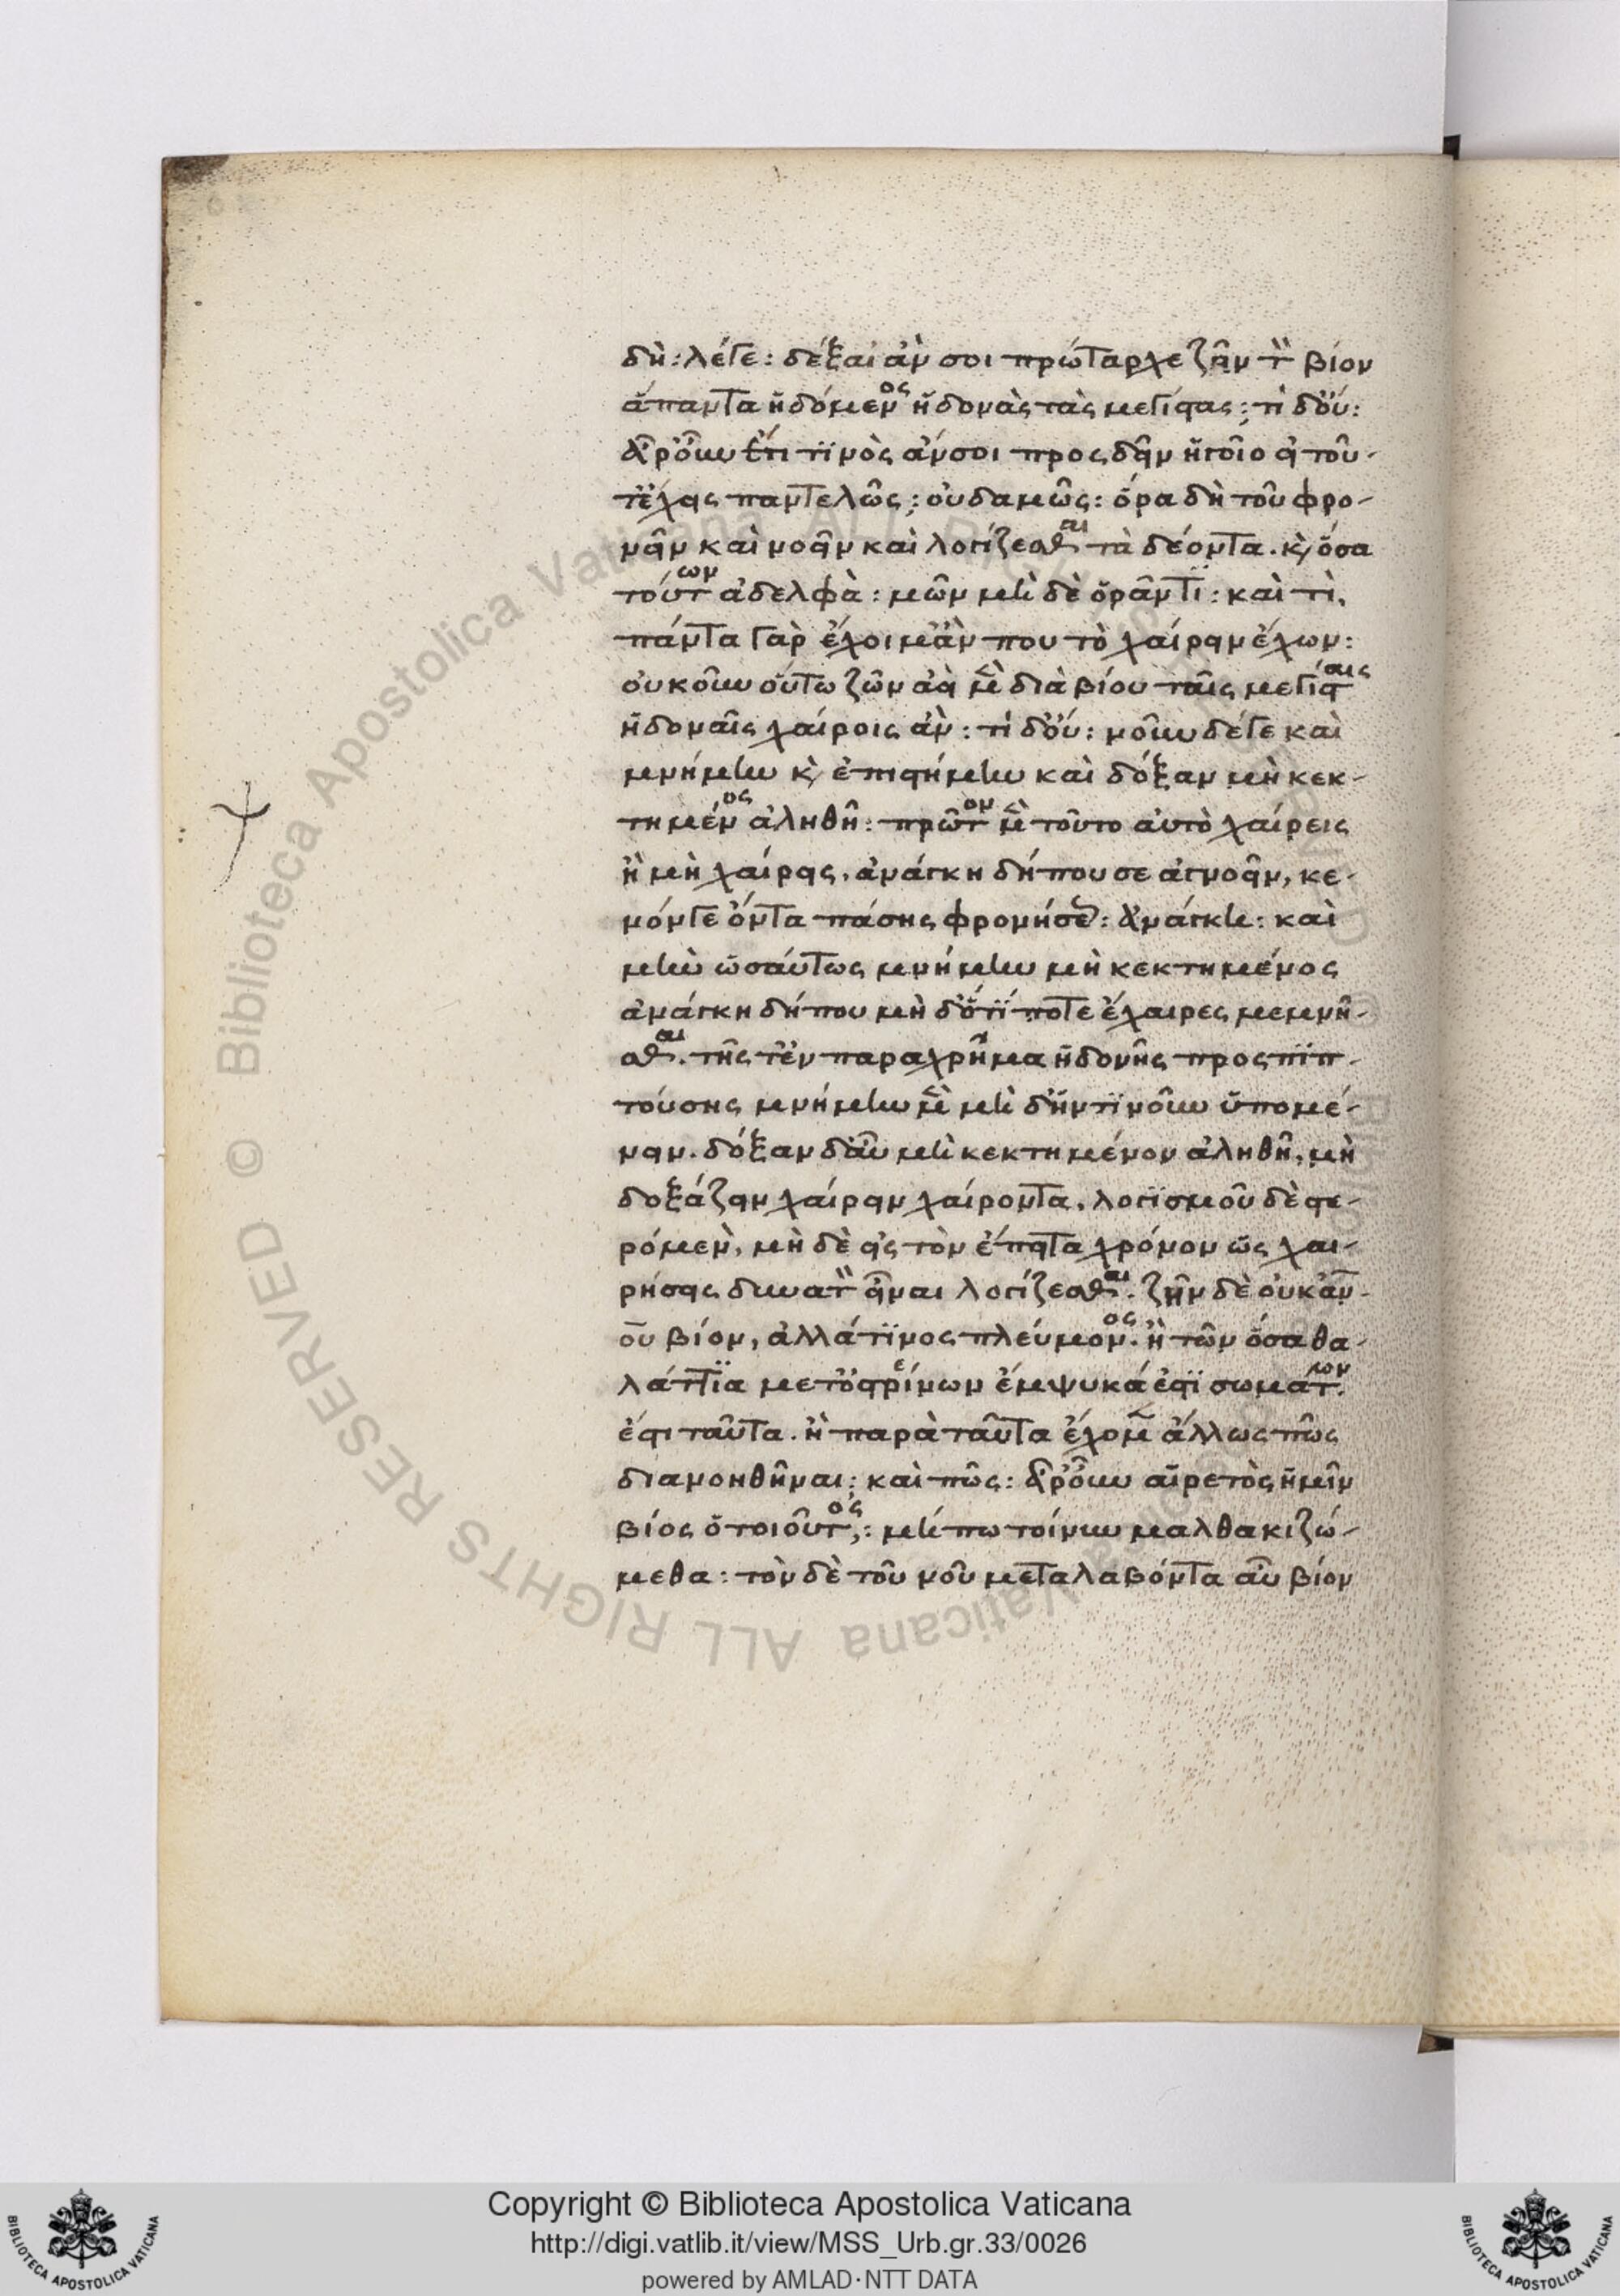 δὴ: λέγε: δέξαι ἂν σοι πρώταρχε ζῆν τὸν βίον
ἅπαντα ἡδόμενος ἡδονὰς τὰς μεγίστας; τί δ' οὔ:
ἆρ' οὖν ἔτι τινὸς ἄν σοι προςδεῖν ἡγοῖο εἰ τοῦ-
τ' ἔχεις παντελῶς; οὐδαμῶς: ὅρα δὴ τοῦ φρο-
νεῖν καὶ νοεῖν καὶ λογίζεσθαι τὰ δέοντα. καὶ ὅσα
τούτων ἀδελφὰ: μῶν μὴ δὲ ὁρᾶν τί: καὶ τί,
πάντα γὰρ ἔχοιμ' ἂν που τὸ χαίρειν ἔχων:
οὐκοῦν οὕτω ζῶν ἀεὶ μὲν διὰ βίου ταῖς μεγίσταις
ἡδοναῖς χαίροις ἄν: τί δ' οὔ: νοῦν δέ γε καὶ
μνήμην καὶ ἐπιστήμην καὶ δόξαν μὴ κεκ-
τημένος ἀληθῆ: πρῶτον μὲν τοῦτο αὐτὸ χαίρεις
ἢ μὴ χαίρεις, ἀνάγκη δήπου σε ἀγνοεῖν, κε-
νόν γε ὄντα πάσης φρονήσεως: ἀνάγκη: καὶ
μὴν ὡσαύτως μνήμην μὴ κεκτημένος
ἀνάγκη δήπου μὴ δ' ὅτί ποτε ἔχαιρες μεμνῆ-
σθαι. τῆς τ' ἐν παραχρῆμα ἡδονῆς προςπιπ-
τούσης μνήμην μὲν μὴ δ' ἥντινοῦν ὑπομέ-
νειν. δόξαν δ' αὖ μὴ κεκτημένον ἀληθῆ, μὴ
δοξάζειν χαίρειν χαίροντα, λογισμοῦ δὲ στε-
ρόμενον, μὴ δὲ εἰς τὸν ἔπειτα χρόνον ὡς χαι-
ρήσεις δυνατὸν εἶναι λογίζεσθαι. ζῆν δὲ οὐκ ἀν-
ου βίον, ἀλλά τινος πλεύμονος. ἢ τῶν ὅσα θα-
λάττια μετ' ὀστρείνων ἔμψυχά ἐστι σωμάτων.
ἔστι ταῦτα. ἢ παρὰ ταῦτα ἔχομεν ἄλλως πῶς
διανοηθῆναι: καὶ πῶς: ἆρ' οὖν αἱρετὸς ἡμῖν
βίος ὁ τοιοῦτος;: μήπω τοίνυν μαλθακιζώ-
μεθα: τὸν δὲ τοῦ νοῦ μεταλαβόντα αὖ βίον
Copyright © Biblioteca Apostolica Vaticana
http://digi.vatlib.it/view/MSS_Urb.gr.33/0026
powered by AMLAD·NTT DATA